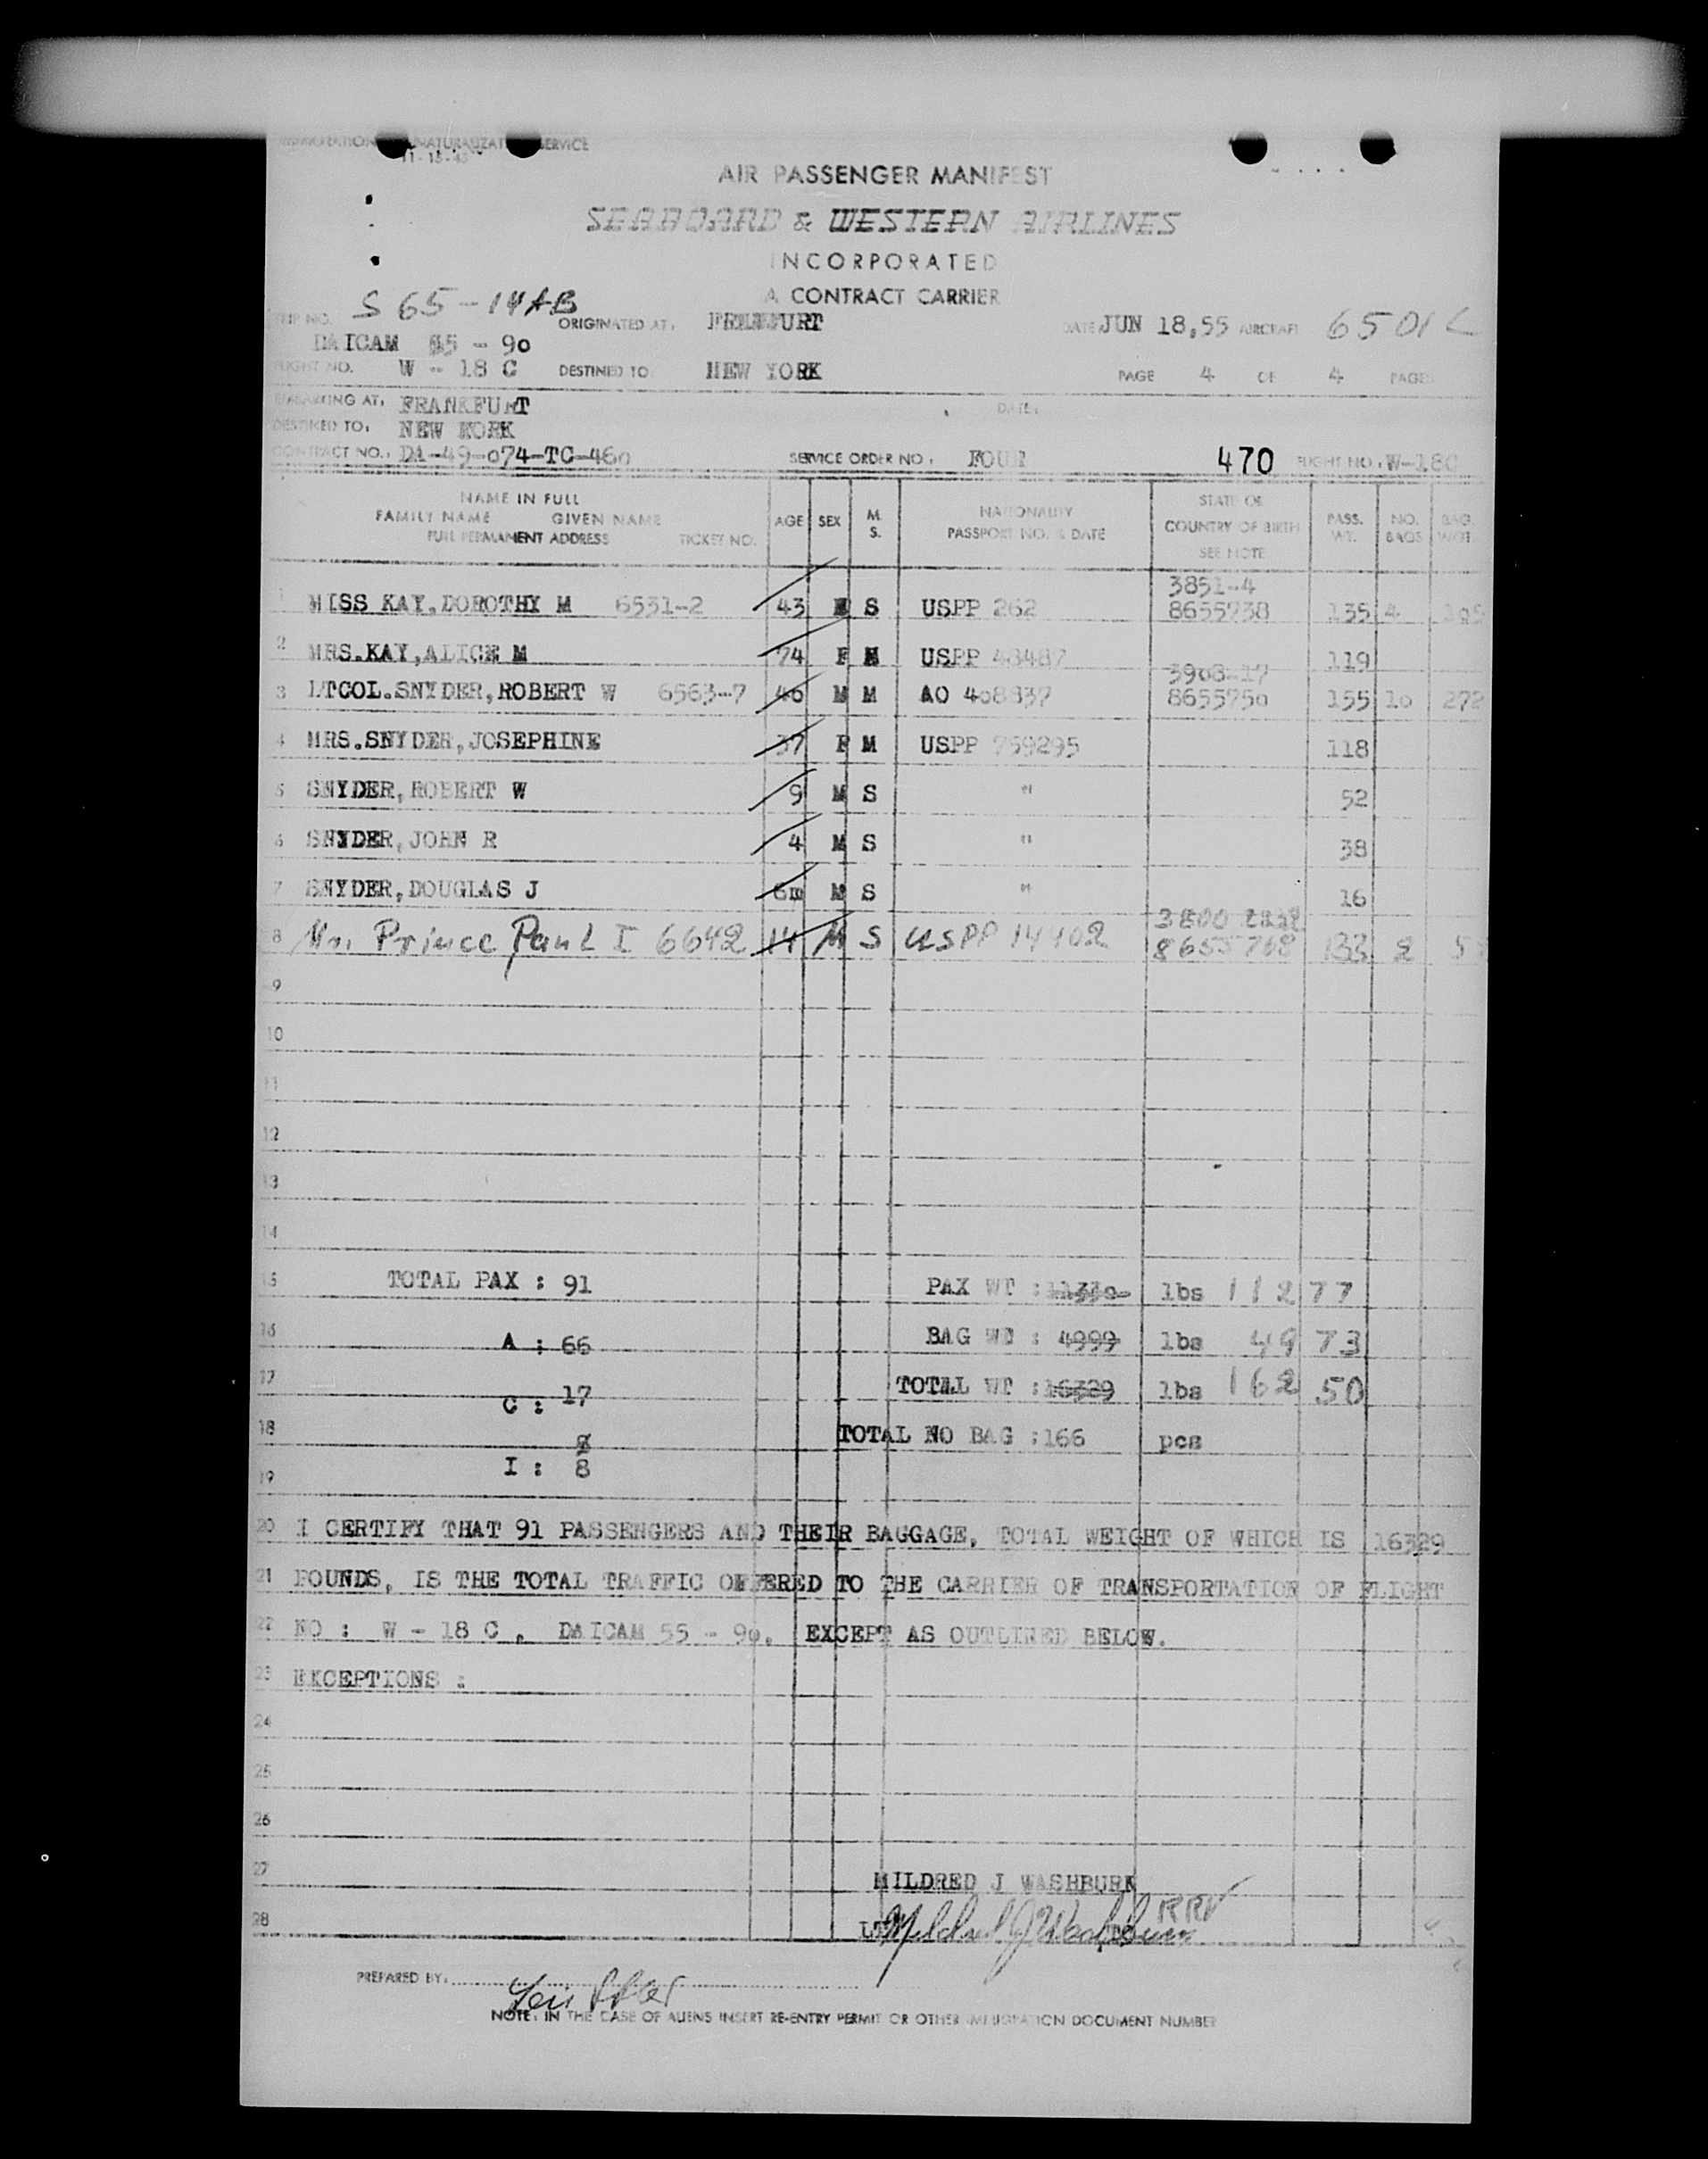 IMMIGRATION NATURALIZATION SERVICE
AIR PASSENGER MANIFEST
SEABOARD & WESTERN AIRLINES
INCORPORATED
A CONTRACT CARRIER
TRIP NO. S 65-14AB ORIGINATED AT: FRANKFURT DATE JUN 18,55 AIRCRAFT 6501C
DAICAM 55 - 90
FLIGHT NO. W - 18 C DESTINED TO NEW YORK PAGE 4 OF 4 PAGES
EMBARKING AT: FRANKFURT DATE:
DESTINED TO: NEW YORK
CONTRACT NO.: DA-49-074-TC-460 SERVICE ORDER NO: FOUR 470 FLIGHT NO. W-18C
NAME IN FULL
FAMILY NAME GIVEN NAME
FULL PERMANENT ADDRESS TICKET NO. AGE SEX M. S. NATIONALITY PASSPORT NO. & DATE STATE OR COUNTRY OF BIRTH SEE NOTE PASS. WT. NO. BAGS BAG. WGT.
3851-4
1 MISS KAY,DOROTHY M 6531-2 43 S USPP 262 8655738 135 4
2 MRS.KAY,ALICE M 74 F USPP 43487 119
3908-17
3 LTCOL.SNYDER,ROBERT W 6563-7 40 M M AO 408837 8655750 155 10 272
4 MRS.SNYDER,JOSEPHINE 37 F M USPP 759295 118
5 SNYDER,ROBERT W 9 M S " 52
6 SNYDER,JOHN R 4 M S " 38
7 SNYDER,DOUGLAS J 6m M S " 16
3800
8 Mr. Prince Paul I 6642 14 M S USPP 14402 8655762 133 2
9
10
11
12
13
14
15 TOTAL PAX : 91 PAX WT : 11330 lbs 11277
16 A : 66 BAG WT : 4999 lbs 4973
17 C : 17 TOTAL WT : 16329 lbs 16250
18 TOTAL NO BAG : 166 pcs
19 I : 8
20 I CERTIFY THAT 91 PASSENGERS AND THEIR BAGGAGE, TOTAL WEIGHT OF WHICH IS 16329
21 POUNDS, IS THE TOTAL TRAFFIC OFFERED TO THE CARRIER OF TRANSPORTATION OF FLIGHT
22 NO : W - 18 C , DAICAM 55 - 90, EXCEPT AS OUTLINED BELOW.
23 EXCEPTIONS :
24
25
26
27 MILDRED J WASHBURN
28 LT Mildred J Washburn RRV
PREPARED BY:
NOTE: IN THE CASE OF ALIENS INSERT RE-ENTRY PERMIT OR OTHER IMMIGRATION DOCUMENT NUMBER